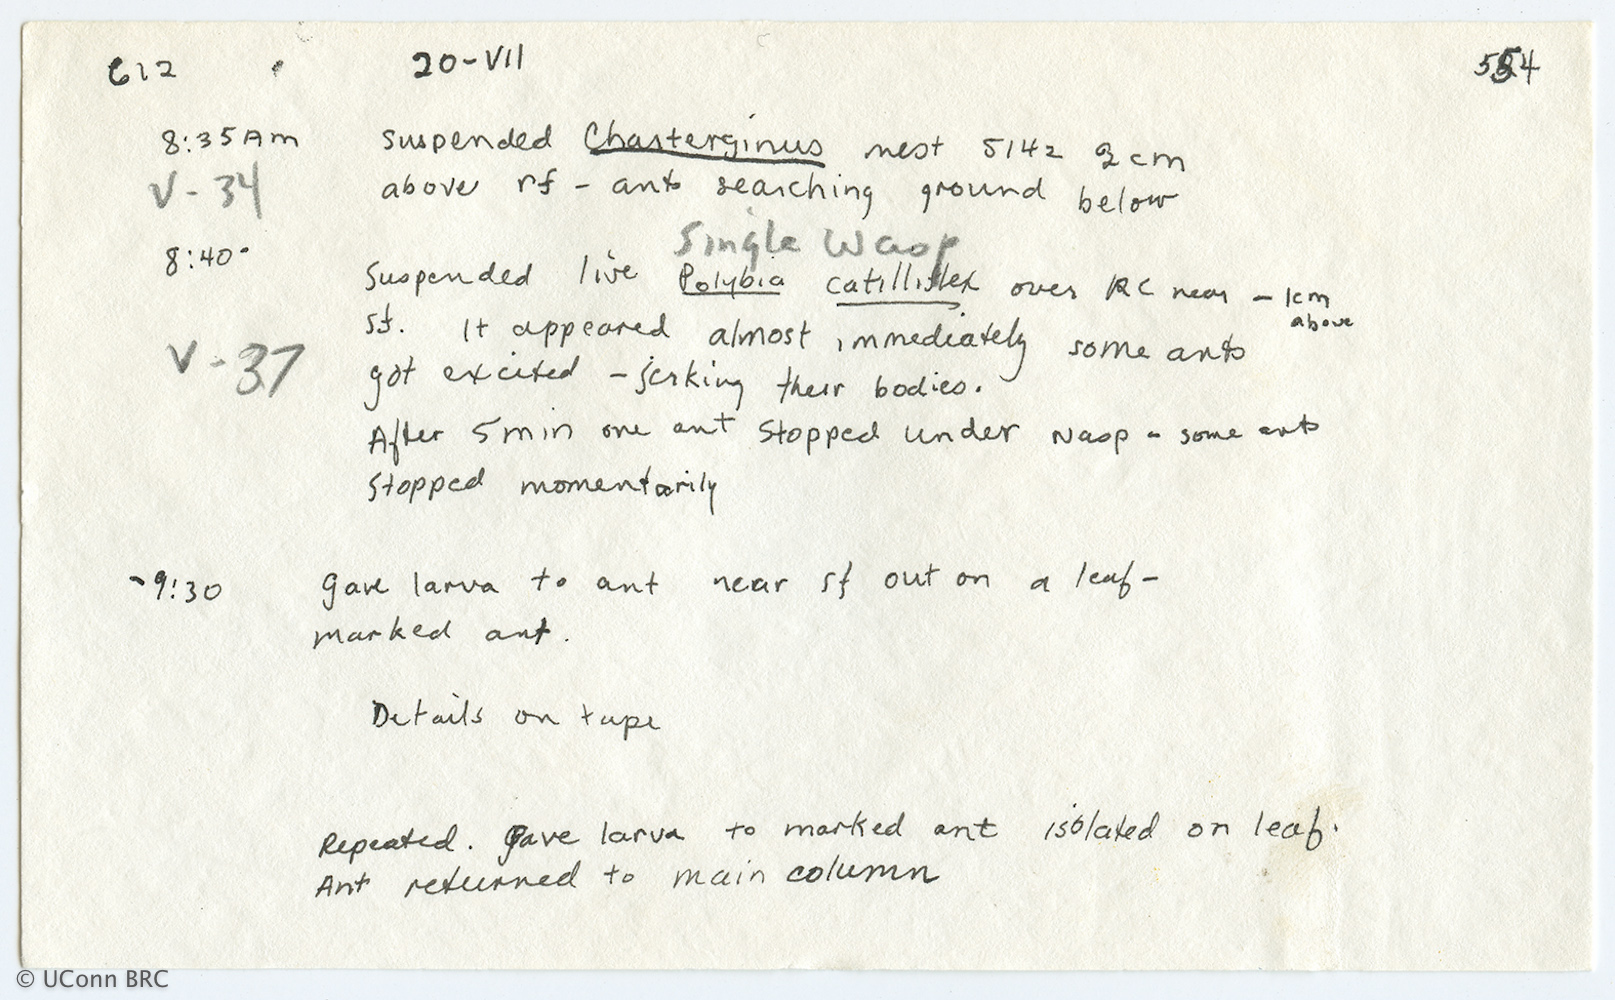 612 20-VII 554
8:35 Am suspended Charterginus nest 5142 2 cm
V-34 above rf - ants searching ground below
Single Wasp
8:40 Suspended live Polybia catillifex over RC near - 1cm above
sf. It appeared almost immediately some ants
V-37 got excited - jerking their bodies.
After 5 min one ant stopped under wasp - some ants
stopped momentarily
~9:30 gave larva to ant near sf out on a leaf-
marked ant.
Details on tape
Repeated. Gave larva to marked ant isolated on leaf.
Ant returned to main column
© UConn BRC